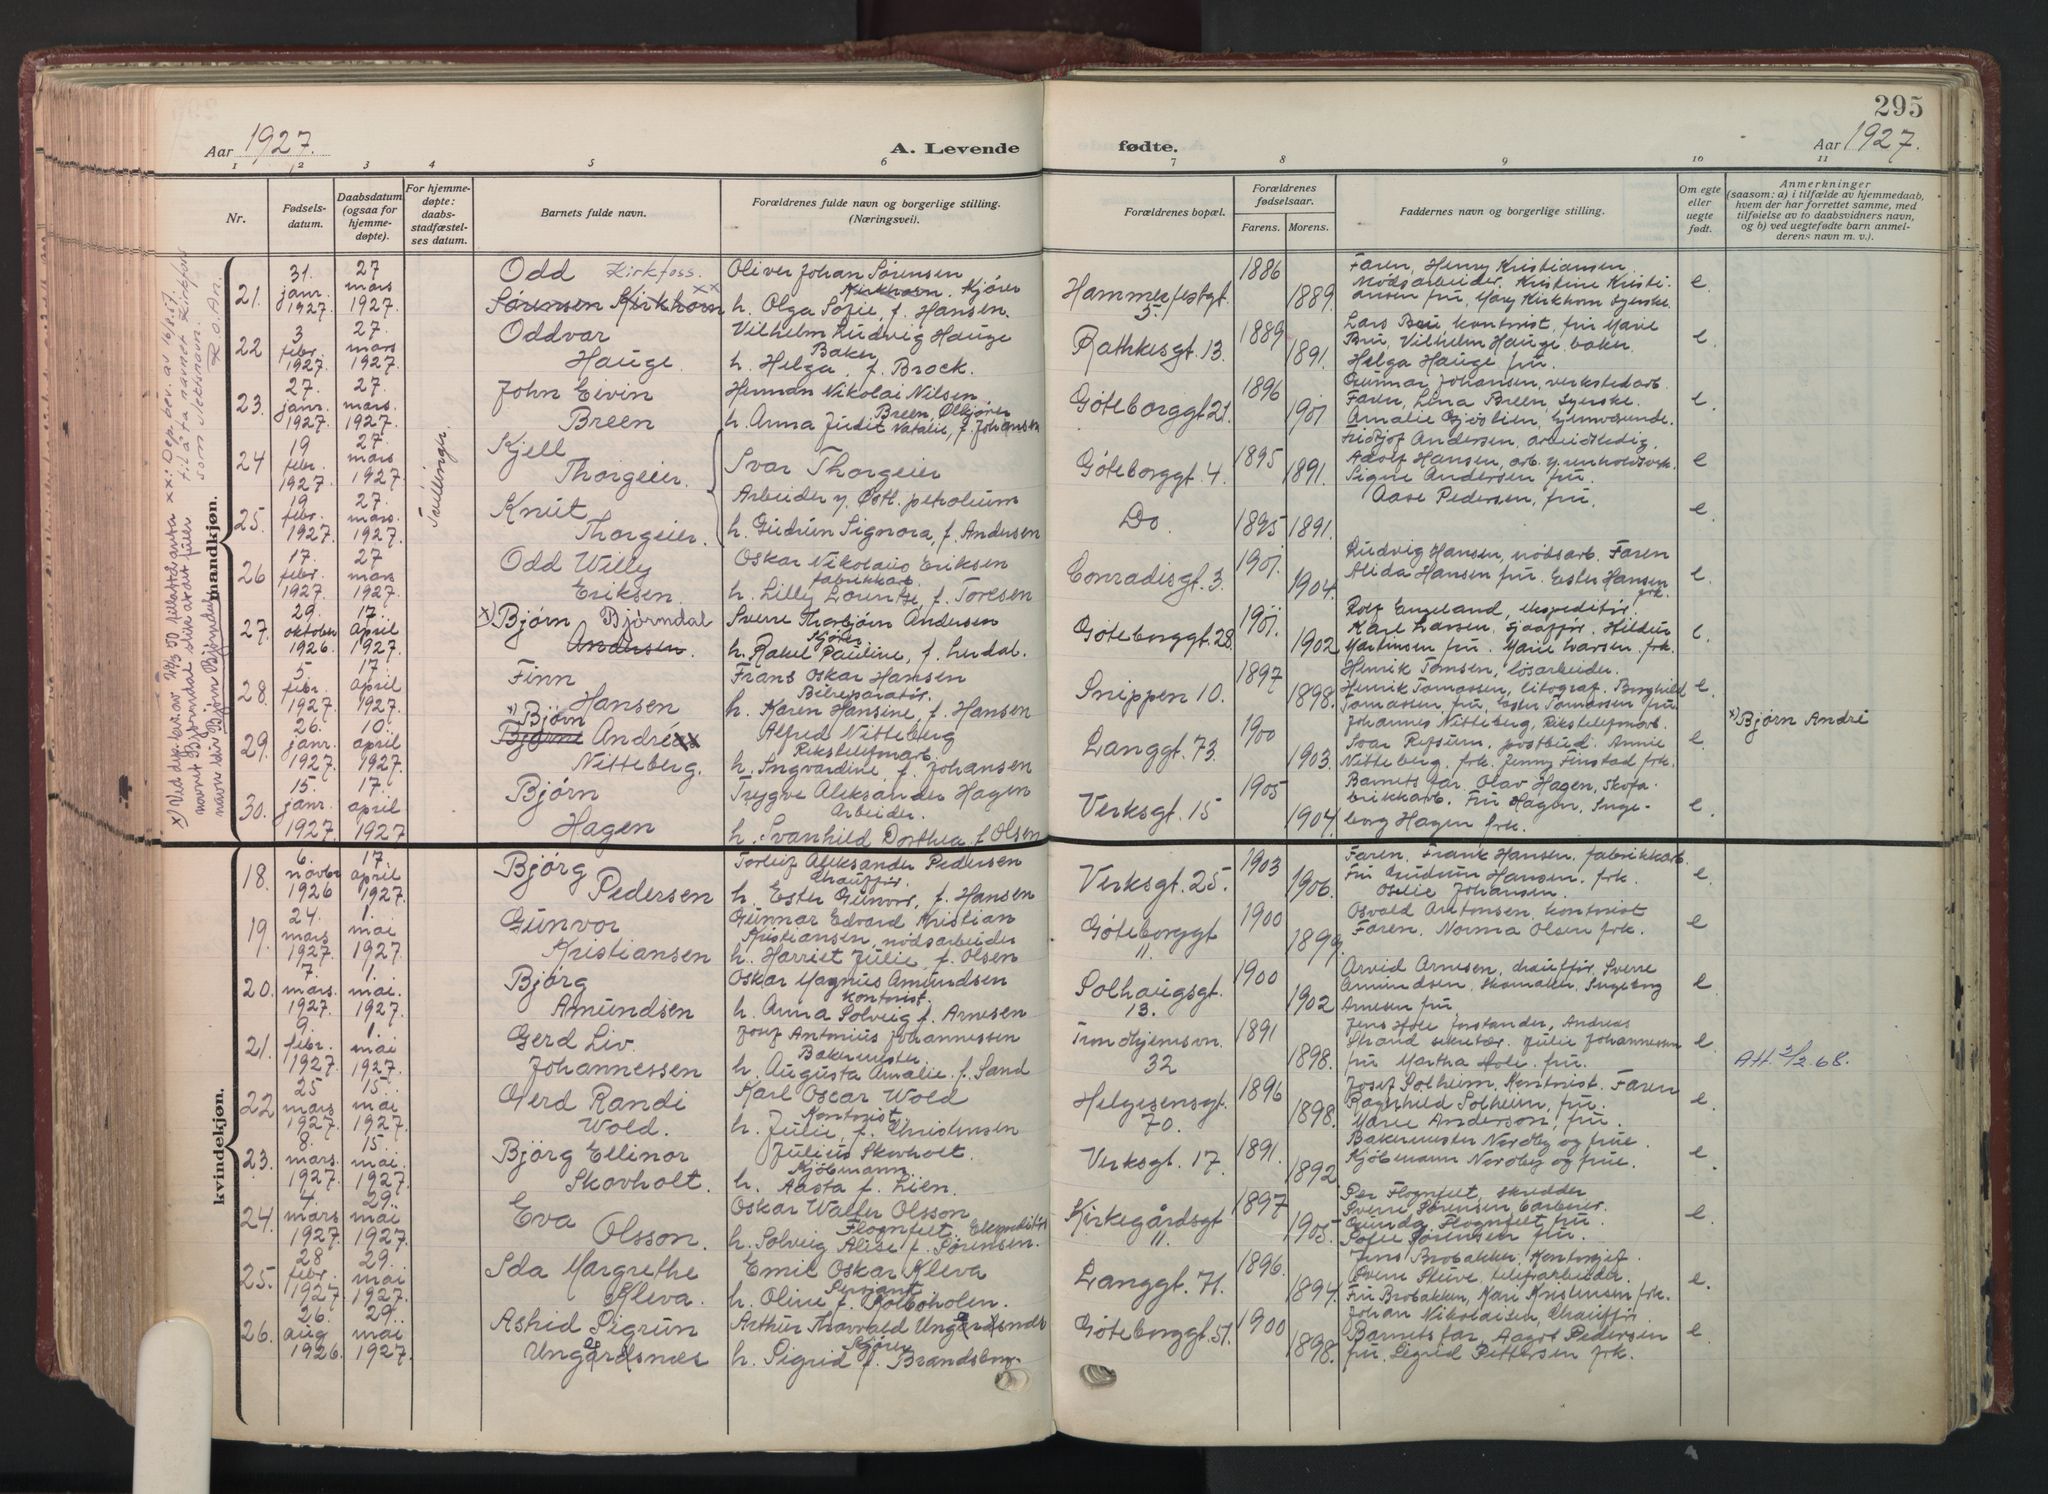 295
Aar 1927.
A. Levende
fødte.
Aar 1927.
1 2 3 4 5 6 7 8 9 10 11
Nr.
Fødsels-
datum.
Daabsdatum
(ogsaa for
hjemme-
døpte).
For hjemme-
døpte:
daabs-
stadfæstel-
ses datum.
Barnets fulde navn.
Forældrenes fulde navn og borgerlige stilling.
(Næringsvei).
Forældrenes bopæl.
Forældrenes
fødselsaar.
Farens. Morens.
Faddernes navn og borgerlige stilling.
Om egte
eller
uegte
født.
Anmerkninger
(saasom: a) i tilfælde av hjemmedaab,
hvem der har forrettet samme, med
tilføielse av to daabsvidners navn,
og b) ved uegtefødte barn anmel-
derens navn m. v.).
mandkjøn.
21. 31. janr. 1927 27 mars 1927.
Odd Kirkfoss.
Sørensen Kirkhorn xx
Oliver Johan Sørensen
Kirkhorn. Kjører
h. Olga Sofie, f. Hansen.
Hammerfestgt. 5.
1886 1889.
Faren, Henry Kristiansen
Nødsarbeider, Kristine Kristi-
ansen fru, Mary Kirkhorn Syerske.
e.
22 3 febr. 1927. 27. mars 1927.
Oddvar
Hauge.
Vilhelm Ludvig Hauge
Baker
h. Helga, f. Brock.
Rathkesgt. 13.
1889 1891.
Lars Bru, kontorist, fru Marie
Bru, Vilhelm Hauge baker.
Helga Hauge fru.
e.
23. 27. janr. 1927 27. mars. 1927.
John Eivin
Breen
Herman Nikolai Nilsen
Breen, Ølkjører
h. Anna Judit Natalie, f. Johansen
Gøteborggt 21.
1896 1901
Gunnar Johansen, verkstedarb.
Faren, Lina Breen, Syerske.
e.
24 19 febr. 1927 27 mars 1927
Tvillinger.
Kjell
Thorgeier.
Svar Thorgeier
Arbeider v. Østl. petroleum
h. Gudrun Signora, f. Andersen
Gøteborggt. 4.
1895 1891.
Fridtjof Andersen, arbeidsledig.
Adolf Hansen, arb. v. renholdsvrk.
Signe Andersen fru.
Aase Pedersen, fru
e
25. 19 febr. 1927. 27. mars. 1927.
Knut
Thorgeier.
Do
1895 1891.
e.
26 17 febr. 1927. 27 mars 1927.
Odd Willy
Eriksen.
Oskar Nikolaus Eriksen
fabrikkarb.
h. Lilly Lorentse f. Toresen
Conradisgt. 3.
1901. 1904.
Ludvig Hansen, nødsarb. Faren
Alida Hansen fru. Ester Hansen
frk.
e.
27. 29. oktober 1926 17. april 1927.
x) Bjørn Bjørndal
Andersen.
Sverre Thorbjørn Andersen
Kjører
h. Rakel Pauline, f. Lerdal.
Gøteborggt. 28.
1901. 1902
Rolf Engeland, ekspeditør.
Karl Larsen. Sjaafør. Hildur
Martinsen fru. Marie Larsen. frk.
e.
28. 5 febr. 1927 17 april 1927.
Finn
Hansen
Frans Oskar Hansen
Bilreparatør.
h. Karen Hansine, f. Hansen
Snippen 10.
1897 1898.
Henrik Tomsen, løsarbeider.
Henrik Tomassen, litograf. Borghild
Tomassen fru, Ester Tomassen fru
e.
29. 26. janr. 1927. 10. april 1927.
x) Bjørn
Bjarne André xx
Nitteberg.
Alfred Nitteberg
Rikstelefmarb.
h. Ingvardine, f. Johansen
Langgt. 73.
1900 1903.
Johannes Nitteberg, Rikstelefmarb.
Ivar Refsum, postbud. Annie
Nitteberg. frk. Jenny Finstad frk.
e.
x) Bjørn André
30. 15. janr. 1927. 17. april 1927
Bjørn
Hagen
Trygve Aleksander Hagen
Arbeider.
h. Svanhild Dorthea f. Olsen
Verksgt. 15
1905 1904.
Barnets far, Olav Hagen, Skofa-
brikkarb. Fru Hagen, Inge-
borg Hagen frk.
e.
kvindekjøn.
18. 6. novbr 1926 17. april 1927.
Bjørg
Pedersen
Torleif Aleksander Pedersen
Chauffør.
h. Ester Gunvor, f. Hansen
Verksgt. 25.
1903 1906.
Faren, Frank Hansen, fabrikkarb.
Fru Gudrun Hansen. frk.
Oselie Johansen.
e.
19. 24. mars 1927 1. mai 1927.
Gunvor
Kristiansen
Gunnar Edvard Kristian
Kristiansen, nødsarbeider
h. Harriet Julie, f. Olsen
Gøteborggt 11
1900 1899.
Osvald Antonsen, kontorist
Faren. Norma Olsen frk.
e
20. 7. mars. 1927. 1. mai. 1927.
Bjørg
Amundsen
Oskar Magnus Amundsen
Kontorist.
h. Anna Solveig f. Arnesen
Solhaugsgt. 13.
1900 1902
Arvid Arnesen, chauffør, Sverre
Amundsen, Skomaker, Ingeborg
Arnesen fru
e.
21. 9. febr. 1927 1. mai 1927.
Gerd Liv
Johannessen
Josef Antonius Johannessen
Bakermester
h. Augusta Amalie f. Sand
Trondhjemsvn. 32
1891 1898.
Jens Hole forstander, Andreas
Strand sekretær. Julie Johannessen
fru Martha Hole. fru.
e.
AH. 2/2 68.
22 25 mars 1927. 15 mai 1927.
Gerd Randi
Wold.
Karl Oscar Wold
Kontorist
h. Julie, f. Christensen
Helgesensgt. 70.
1896 1898.
Josef Solheim, Kontorist. Faren
Ragnhild Solheim, fru.
Marie Anderson, fru.
e.
23. 8. mars 1927. 15. mai. 1927.
Bjørg Ellinor
Skovholt.
Julius Skovholt.
Kjøbmann.
h. Aasta f. Lien.
Verksgt. 17
1891. 1892
Bakermester Nordby og frue.
Kjøbmann Nordby og frue.
e.
24. 4. mars 1927. 29. mai 1927.
Eva
Olsson.
Oskar Walter Olsson
h. Solveig Alise f. Sørensen.
Kirkegårdsgt 11
1897 1905
Per Flognfelt, skredder
Sverre Sørensen Garberer.
Gunda Flognfelt fru.
Sofie Sørensen fru.
e.
25. 28 febr. 1927 29. mai 1927.
Ida Margrethe
Kleva.
Emil Oskar Kleva
Sersjant
h. Oline f. Kolboholen.
Langgt. 71.
1896. 1894.
Jens Brobakken, Kontorsjef.
Sverre Stuve, telefarbeider.
Fru Brobakken, Kari Kristensen frk.
e.
26. 26. aug 1926. 29. mai 1927.
Astrid Sigrun
Ungerdsnæs
Arthur Thorvald Ungersnes
Kjører
h. Sigrid f. Brandsborg.
Gøteborggt. 51.
1900 1898.
Johan Nikolaisen, Chauffør.
Barnets far, Aagot Pedersen
fru. Sigrid Pettersen frk.
e.
x) Ved dep. bev. av 10/3 50 tillatt å anta
navnet Bjørndal slik at det fulle
navn blir Bjørn Bjørndal
xx: Dep. bev. av 16/8.57.
til å ta navnet Kirkfoss
som slektsnavn.
R.o.An.